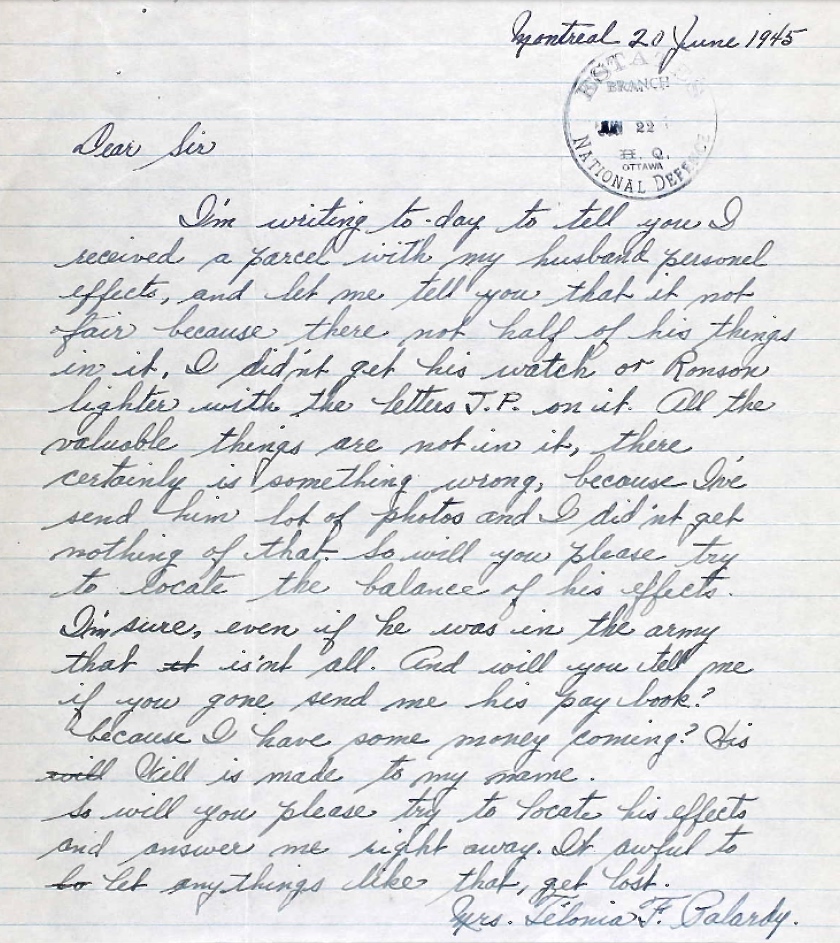 Montreal 20 June 1945
ESTATES
BRANCH
JUN 22
H. Q.
OTTAWA
NATIONAL DEFENCE
Dear Sir
I'm writing to-day to tell you I
received a parcel with my husband personel
effects, and let me tell you that it not
fair because there not half of his things
in it, I did'nt get his watch or Ronson
lighter with the letters J.P. on it. All the
valuable things are not in it, there
certainly is something wrong, because I've
send him lot of photos and I did'nt get
nothing of that. So will you please try
to locate the balance of his effects.
I'm sure, even if he was in the army
that it is'nt all. And will you tell me
if you gone send me his pay book?
because I have some money coming? His
will Will is made to my name.
So will you please try to locate his effects
and answer me right away. It awful to
lo let anythings like that, get lost.
Mrs. Télonia F. Palardy.